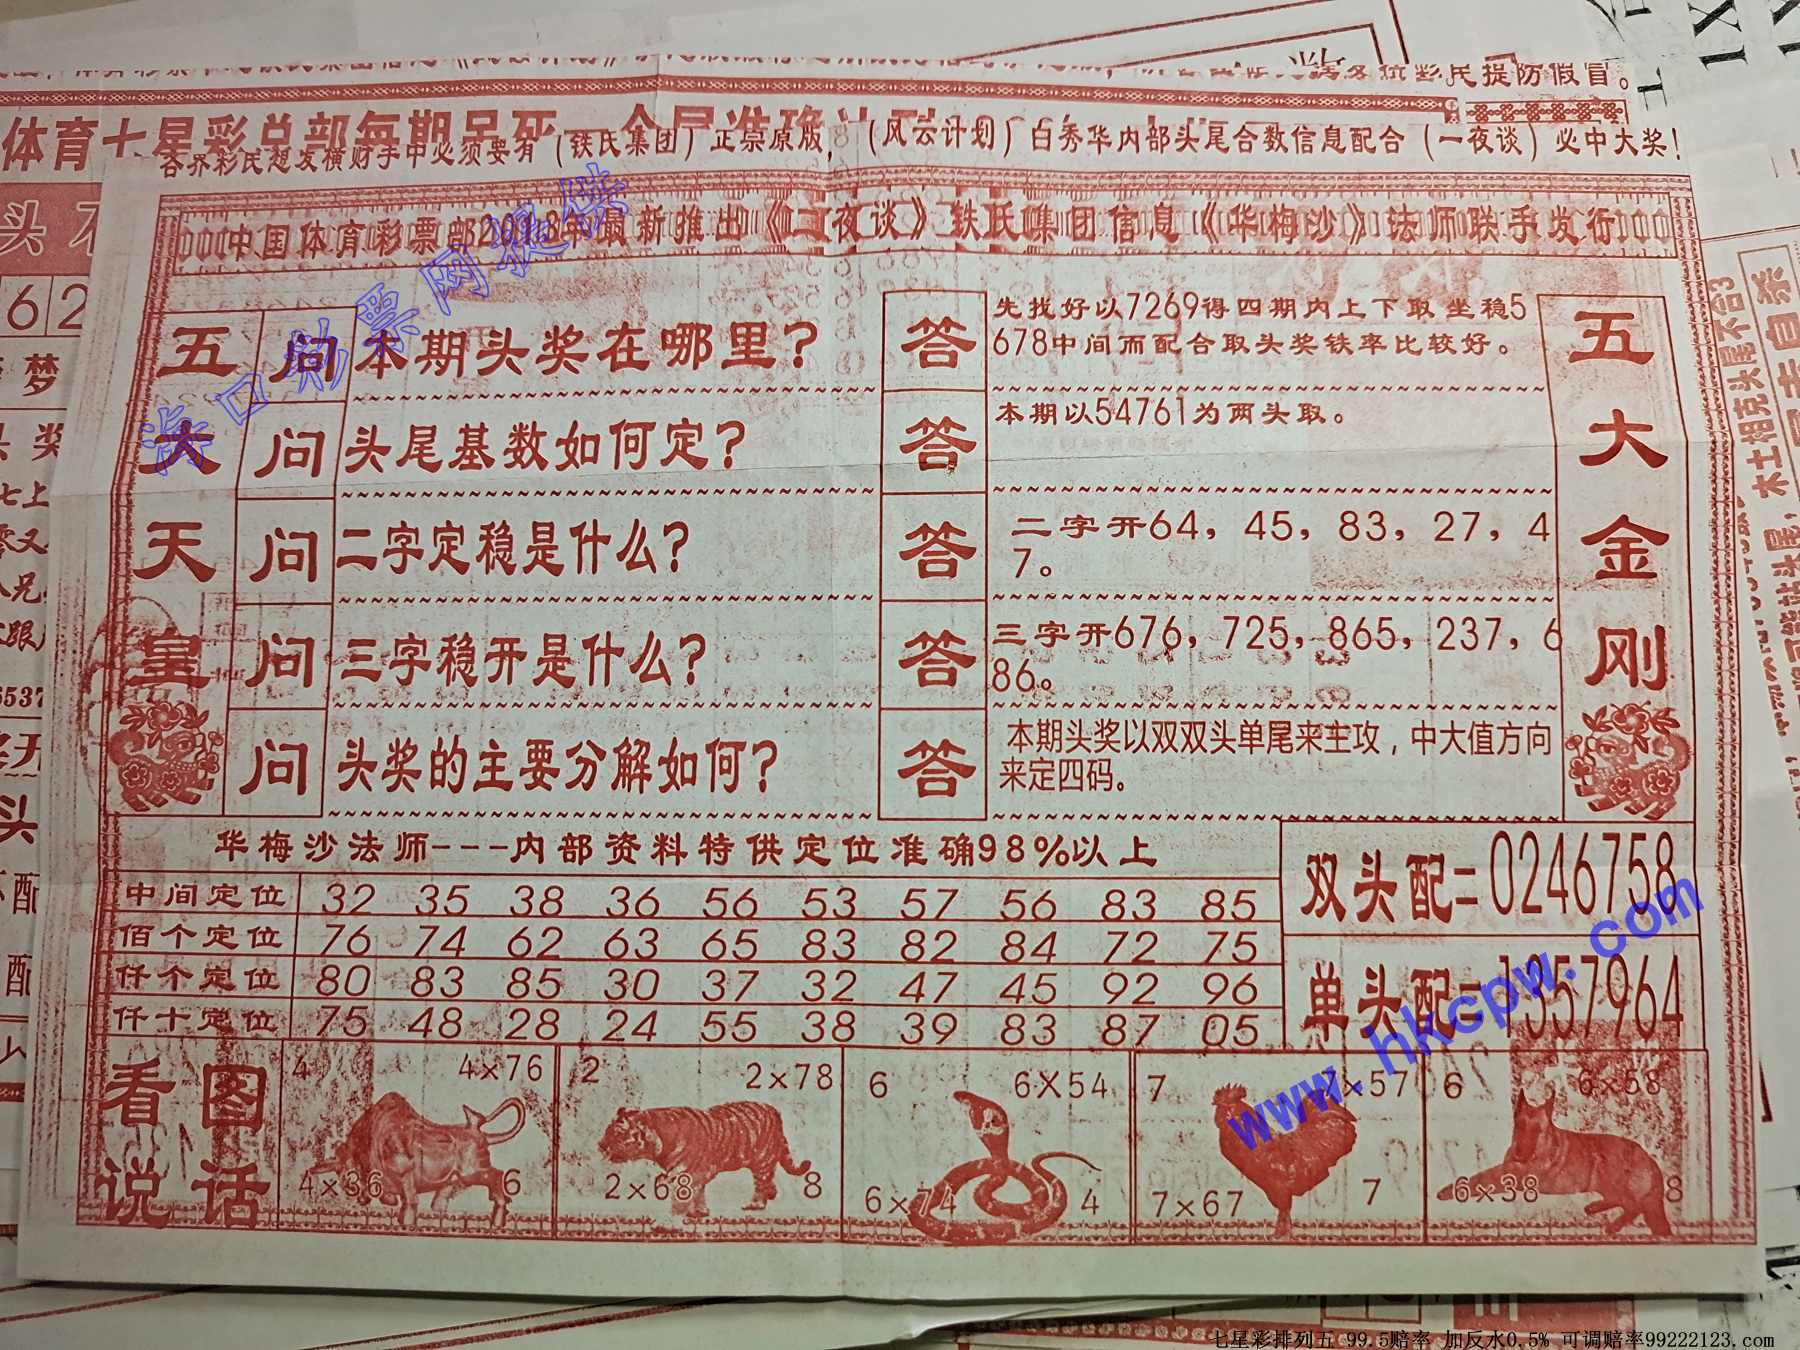 各位彩民提防假冒。
体育七星彩总部每期吊死
各界彩民想发横财手中必须要有（铁氏集团）正宗原版，（风云计划）白秀华内部头尾合数信息配合（一夜谈）必中大奖！
中国体育彩票部2018年最新推出《一夜谈》铁氏集团信息《华梅沙》法师联手发行
五大天皇
五大金刚
问 本期头奖在哪里？ 答 先找好以7269得四期内上下取坐稳5
678中间而配合取头奖铁率比较好。
问 头尾基数如何定？ 答 本期以54761为两头取。
问 二字定稳是什么？ 答 二字开64，45，83，27，4
7。
问 三字稳开是什么？ 答 三字开676，725，865，237，6
86。
问 头奖的主要分解如何？ 答 本期头奖以双双头单尾来主攻，中大值方向
来定四码。
华梅沙法师---内部资料特供定位准确98%以上
中间定位 32 35 38 36 56 53 57 56 83 85
佰个定位 76 74 62 63 65 83 82 84 72 75
仟个定位 80 83 85 30 37 32 47 45 92 96
仟十定位 75 48 28 24 55 38 39 83 87 05
双头配=0246758
单头配=1357964
看图
说话
4 4×76
4×36 6
2 2×78
2×68 8
6 6×54
6×74 4
7 7×57
7×67 7
6 6×58
6×38 8
海口彩票网提供
www.hkcpw.com
七星彩排列五 99.5赔率 加反水0.5% 可调赔率99222123.com